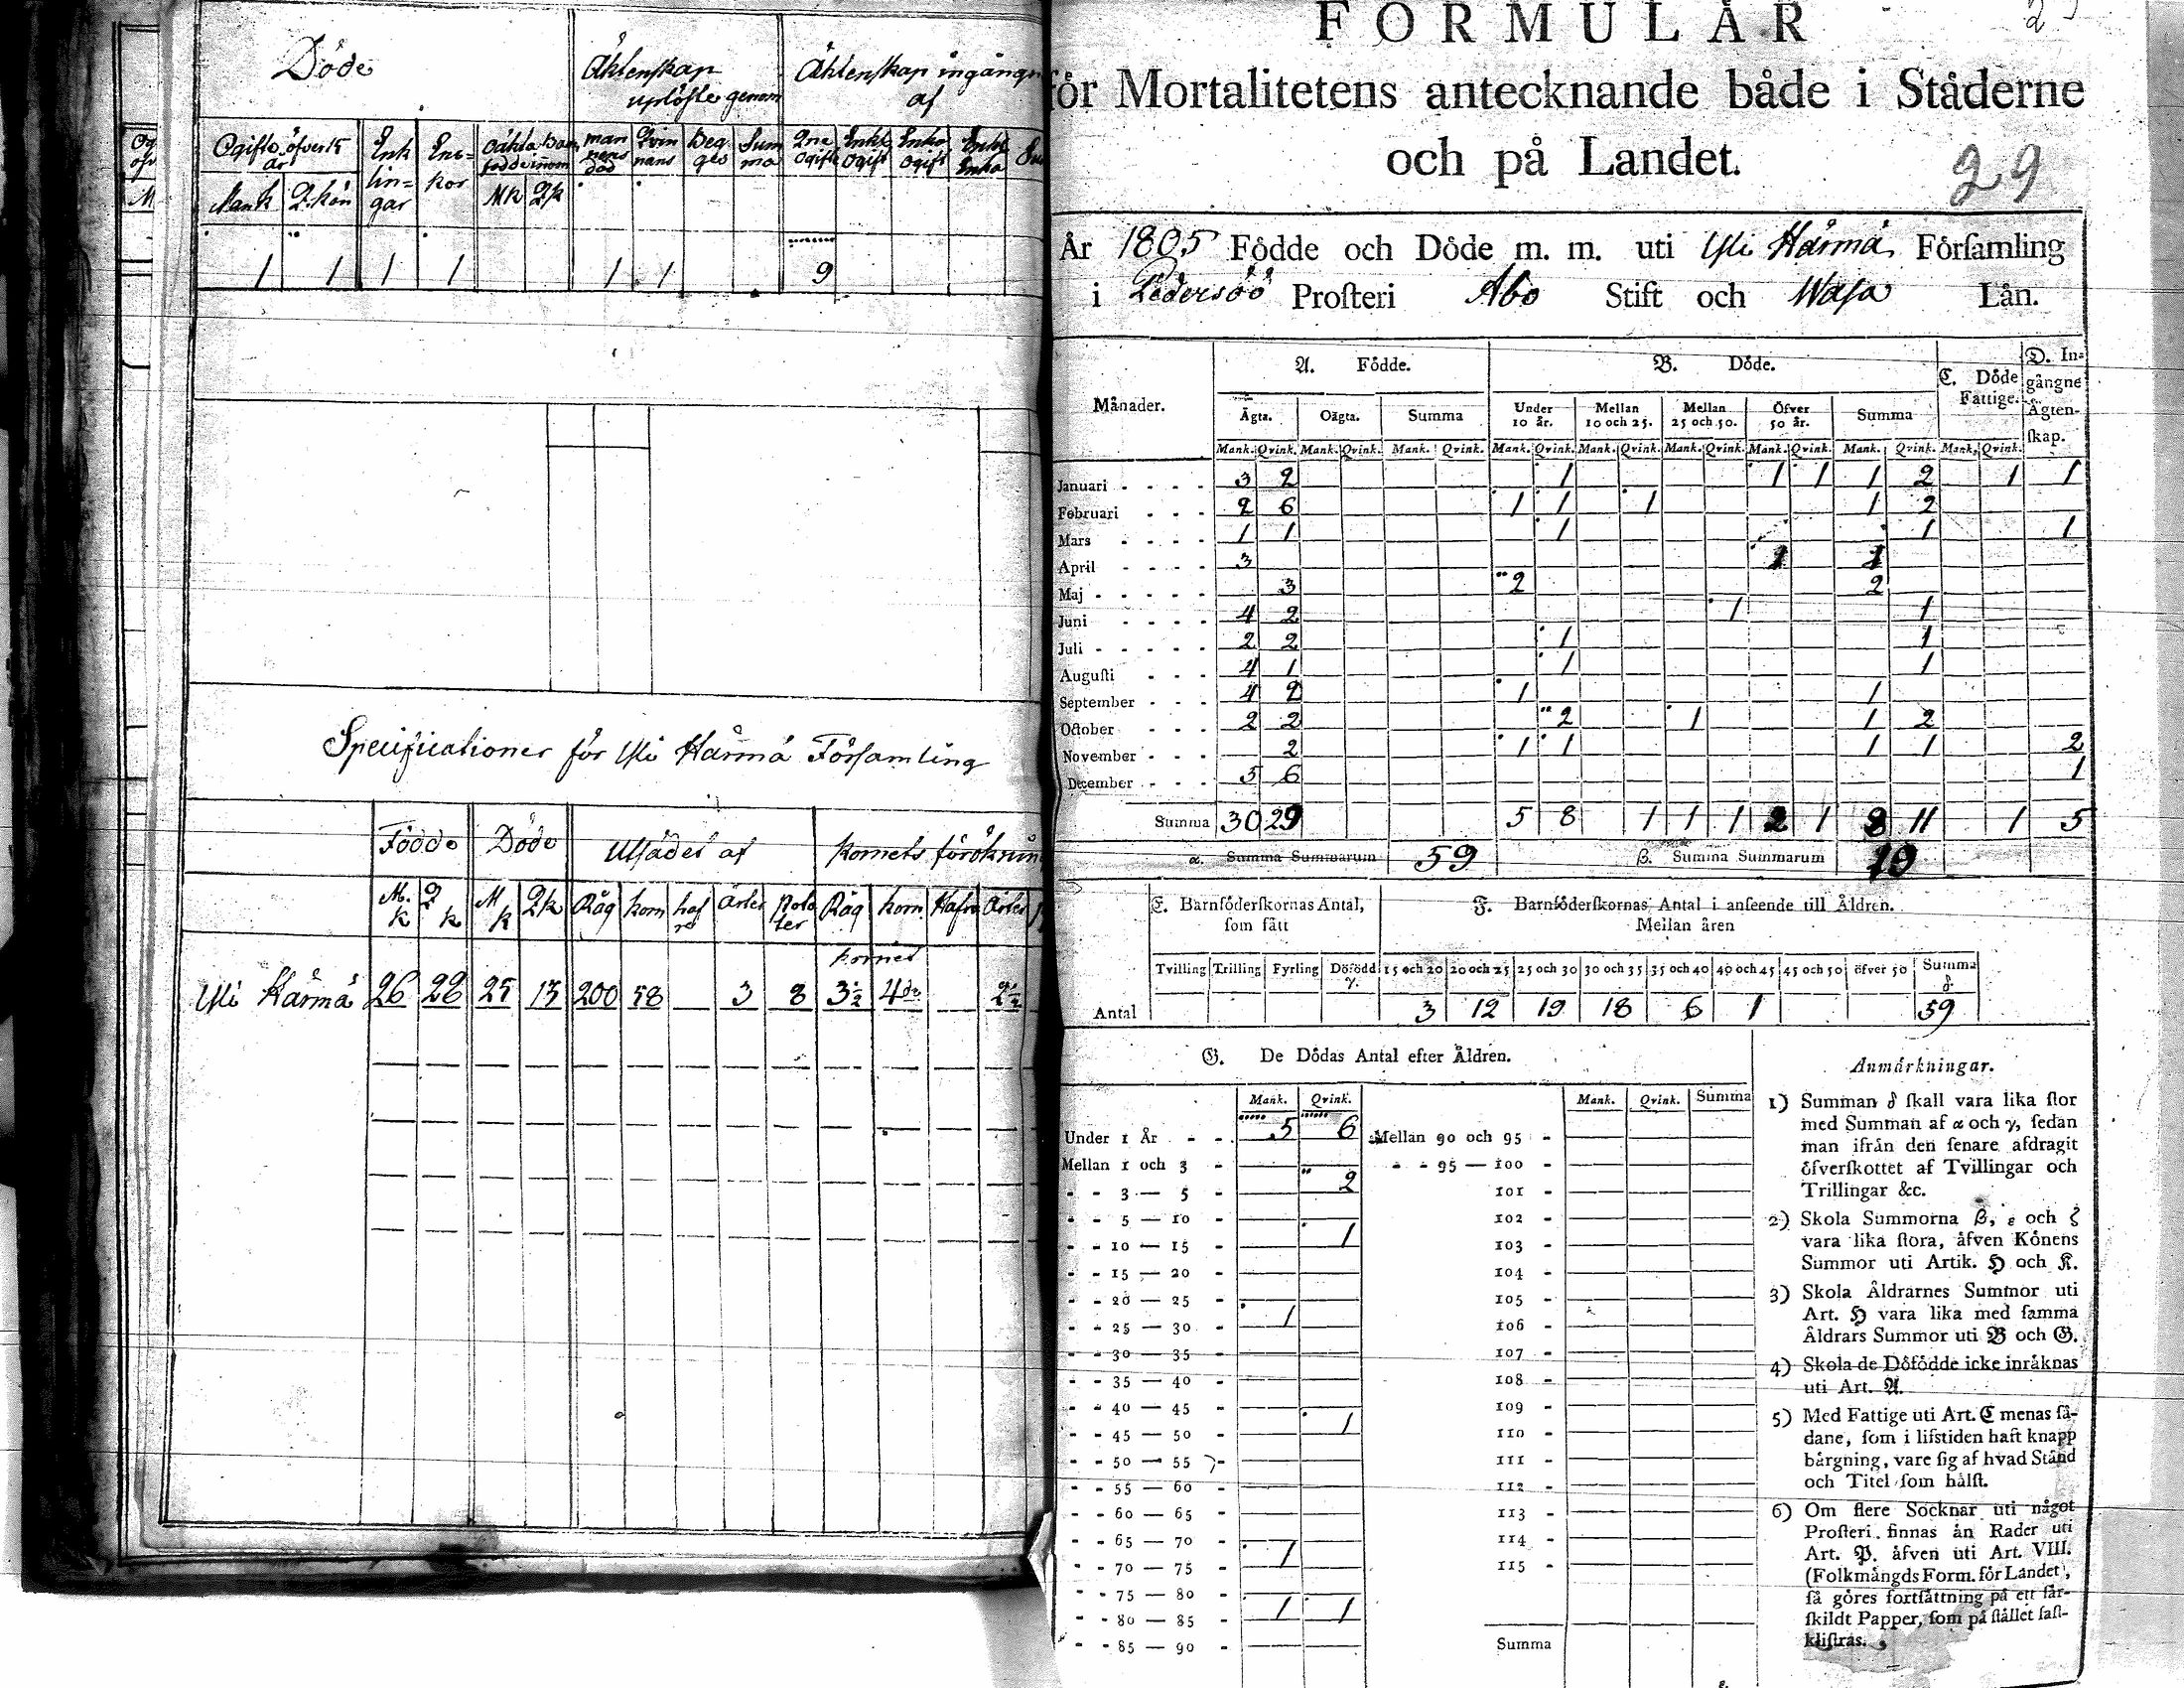 Döde
Ächtenskap
uplöste genom
Ächtenskap ingångn
af
Ogifte öfver 15
år
Enk
lin=
gar
En=
kor
Oächta Barn
födde inom
man
nens
död
Qvin
nans
Beg
ges
Sum
ma
Ogifte
Enkl
Ogift
Enkor
Ogift
Enkl
Enka
Mank
Q. kön
Mk
Qk
1 1 1 1 1 1 9
Specificationer för Yli Härmä Församling
Födde Döde Utsädet af Kornets förökning
M. k Q k M k Qk Råg korn haf re Ärter Poto ter Råg korn Hafre Ärter
kornet
Yli Härmä 26 28 25 13 200 58 3 8 3½ 4de 2½
FORMULÄR
för Mortalitetens antecknande både i Ståderne
och på Landet.
29
År 1805 Fôdde och Dôde m. m. uti Yli Härmä Fôrſamling
i Pedersöö Proſteri Åbo Stift och Waſa Lån.
Månader.
A. Fôdde.
B. Dôde.
C. Dôde
Fattige.
D. In-
gångne
Ågten-
ſkap.
Ågta. Oågta. Summa
Under
10 år.
Mellan
10 och 25.
Mellan
25 och 50.
Öfver
50 år.
Summa
Mank. Qvink. Mank. Qvink. Mank. Qvink. Mank. Qvink. Mank. Qvink. Mank. Qvink. Mank. Qvink. Mank. Qvink. Mank. Qvink.
Januari - - - - 3 2 1 1 1 1 2 1 1
Februari - - - 2 6 1 1 1 1 2
Mars - - - - 1 1 1 1 1
April - - - - 3 1 1
Maj - - - - - 3 2 2
Juni - - - - 4 2 1 1
Juli - - - - - 2 2 1 1
Auguſti - - - 4 1 1 1
September - - - 4 2 1 1
October - - - 2 2 2 1 1 2
November - - - 2 1 1 1 1 2
December - - - 5 6 1
Summa 30 29 5 8 1 1 1 2 1 8 11 1 5
α. Summa Summarum 59 β. Summa Summarum 19
E. Barnfôderſkornas Antal,
ſom fått
F. Barnfôderſkornas Antal i anſeende till Åldren.
Mellan åren
Tvilling Trilling Fyrling Dôfôdd γ. 15 och 20 20 och 25 25 och 30 30 och 35 35 och 40 40 och 45 45 och 50 ôfver 50 Summa δ.
Antal 3 12 19 18 6 1 59
G. De Dôdas Antal efter Åldren.
Mank. Qvink. Mank. Qvink. Summa
Under 1 År - - 5 6 Mellan 90 och 95 -
Mellan 1 och 3 - - - 95 — 100 -
- - 3 — 5 - 2 101 -
- - 5 — 10 - 102 -
- - 10 — 15 - 1 103 -
- - 15 — 20 - 104 -
- - 20 — 25 - 105 -
- - 25 — 30 - 1 106 -
- - 30 — 35 - 107 -
- - 35 — 40 - 108 -
- - 40 — 45 - 109 -
- - 45 — 50 - 1 110 -
- - 50 — 55 - 111 -
- - 55 — 60 - 112 -
- - 60 — 65 - 113 -
- - 65 — 70 - 114 -
- - 70 — 75 - 1 115 -
- - 75 — 80 -
- - 80 — 85 - 1 1
- - 85 — 90 - Summa
Anmårkningar.
1) Summan δ ſkall vara lika ſtor
med Summan af α och γ, ſedan
man ifrån den ſenare afdragit
ôfverſkottet af Tvillingar och
Trillingar &c.
2) Skola Summorna β, ε och ζ
vara lika ſtora, åfven Kônens
Summor uti Artik. H och K.
3) Skola Åldrarnes Summor uti
Art. H vara lika med ſamma
Åldrars Summor uti B och G.
4) Skola de Dôfôdde icke inråknas
uti Art. A.
5) Med Fattige uti Art. C menas ſå-
dane, ſom i lifstiden haft knapp
bårgning, vare ſig af hvad Stånd
och Titel ſom hålſt.
6) Om flere Socknar uti något
Proſteri finnas ån Rader uti
Art. P. åfven uti Art. VIII.
(Folkmångds Form. fôr Landet),
få gôres fortſåttning på ett ſår-
ſkildt Papper, ſom på ſtållet faſt-
kliſtras.